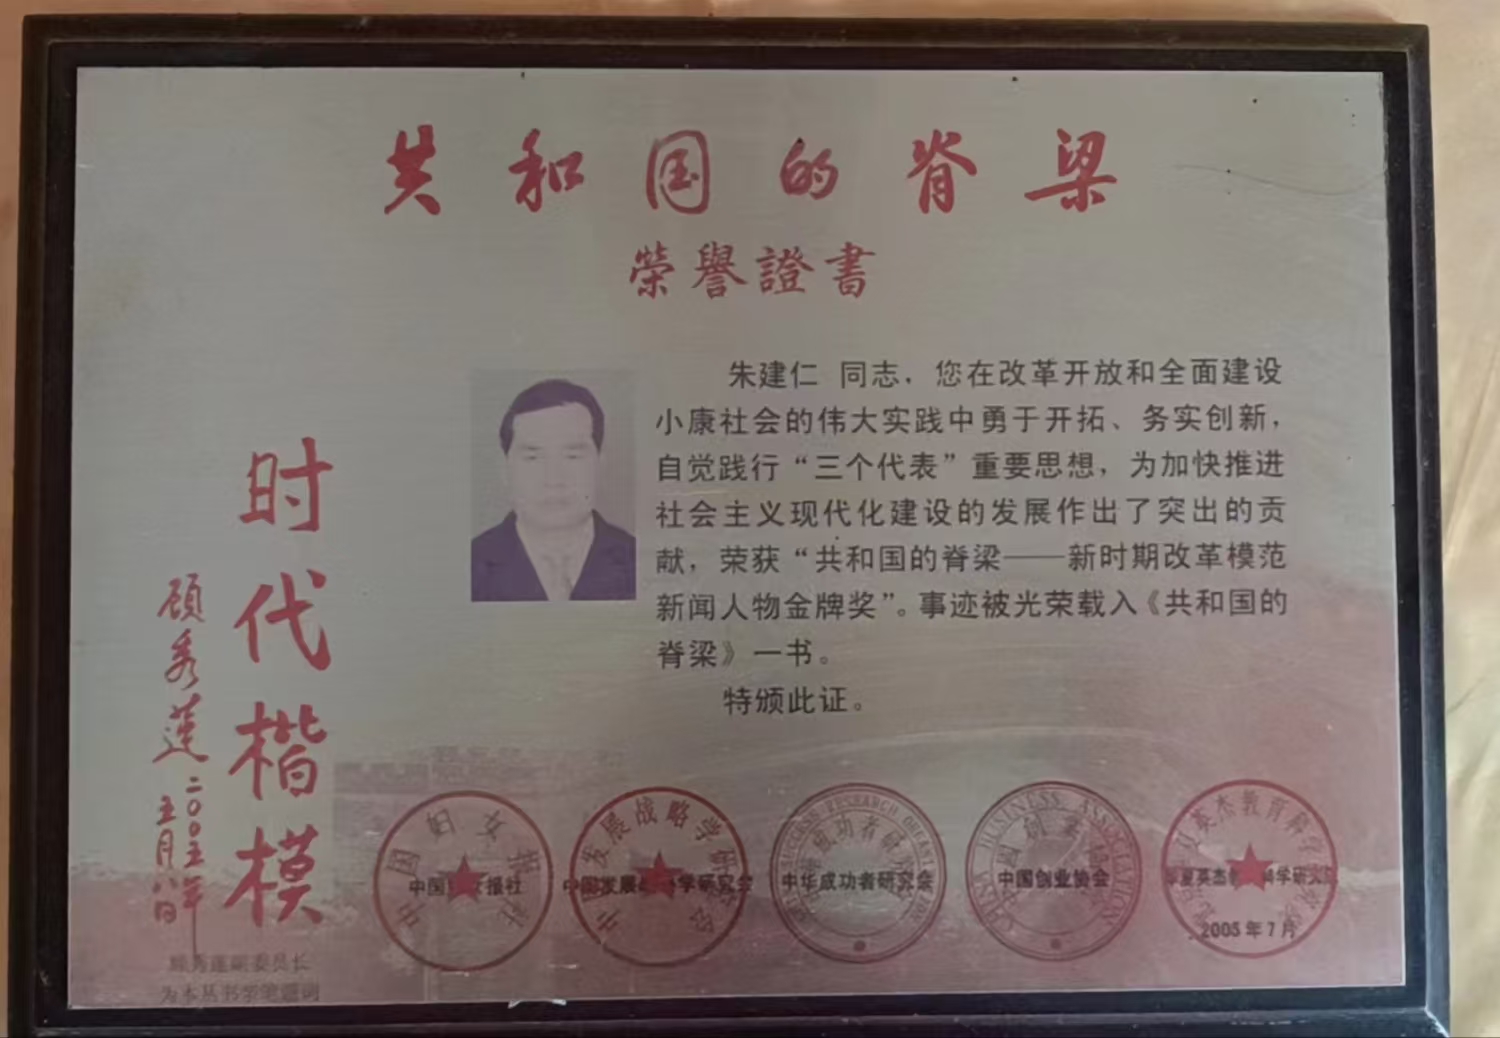 共和国的脊梁
荣譽證書
朱建仁 同志，您在改革开放和全面建设
小康社会的伟大实践中勇于开拓、务实创新，
自觉践行“三个代表”重要思想，为加快推进
社会主义现代化建设的发展作出了突出的贡
献，荣获“共和国的脊梁——新时期改革模范
新闻人物金牌奖”。事迹被光荣载入《共和国的
脊梁》一书。
特颁此证。
时代楷模
顾秀莲
二〇〇五年
五月八日
顾秀莲副委员长
为本丛书亲笔题词
中国妇女报社
中国发展战略学研究会
中华成功者研究会
中国创业协会
CHINA BUSINESS ASSOCIATION
2005年7月